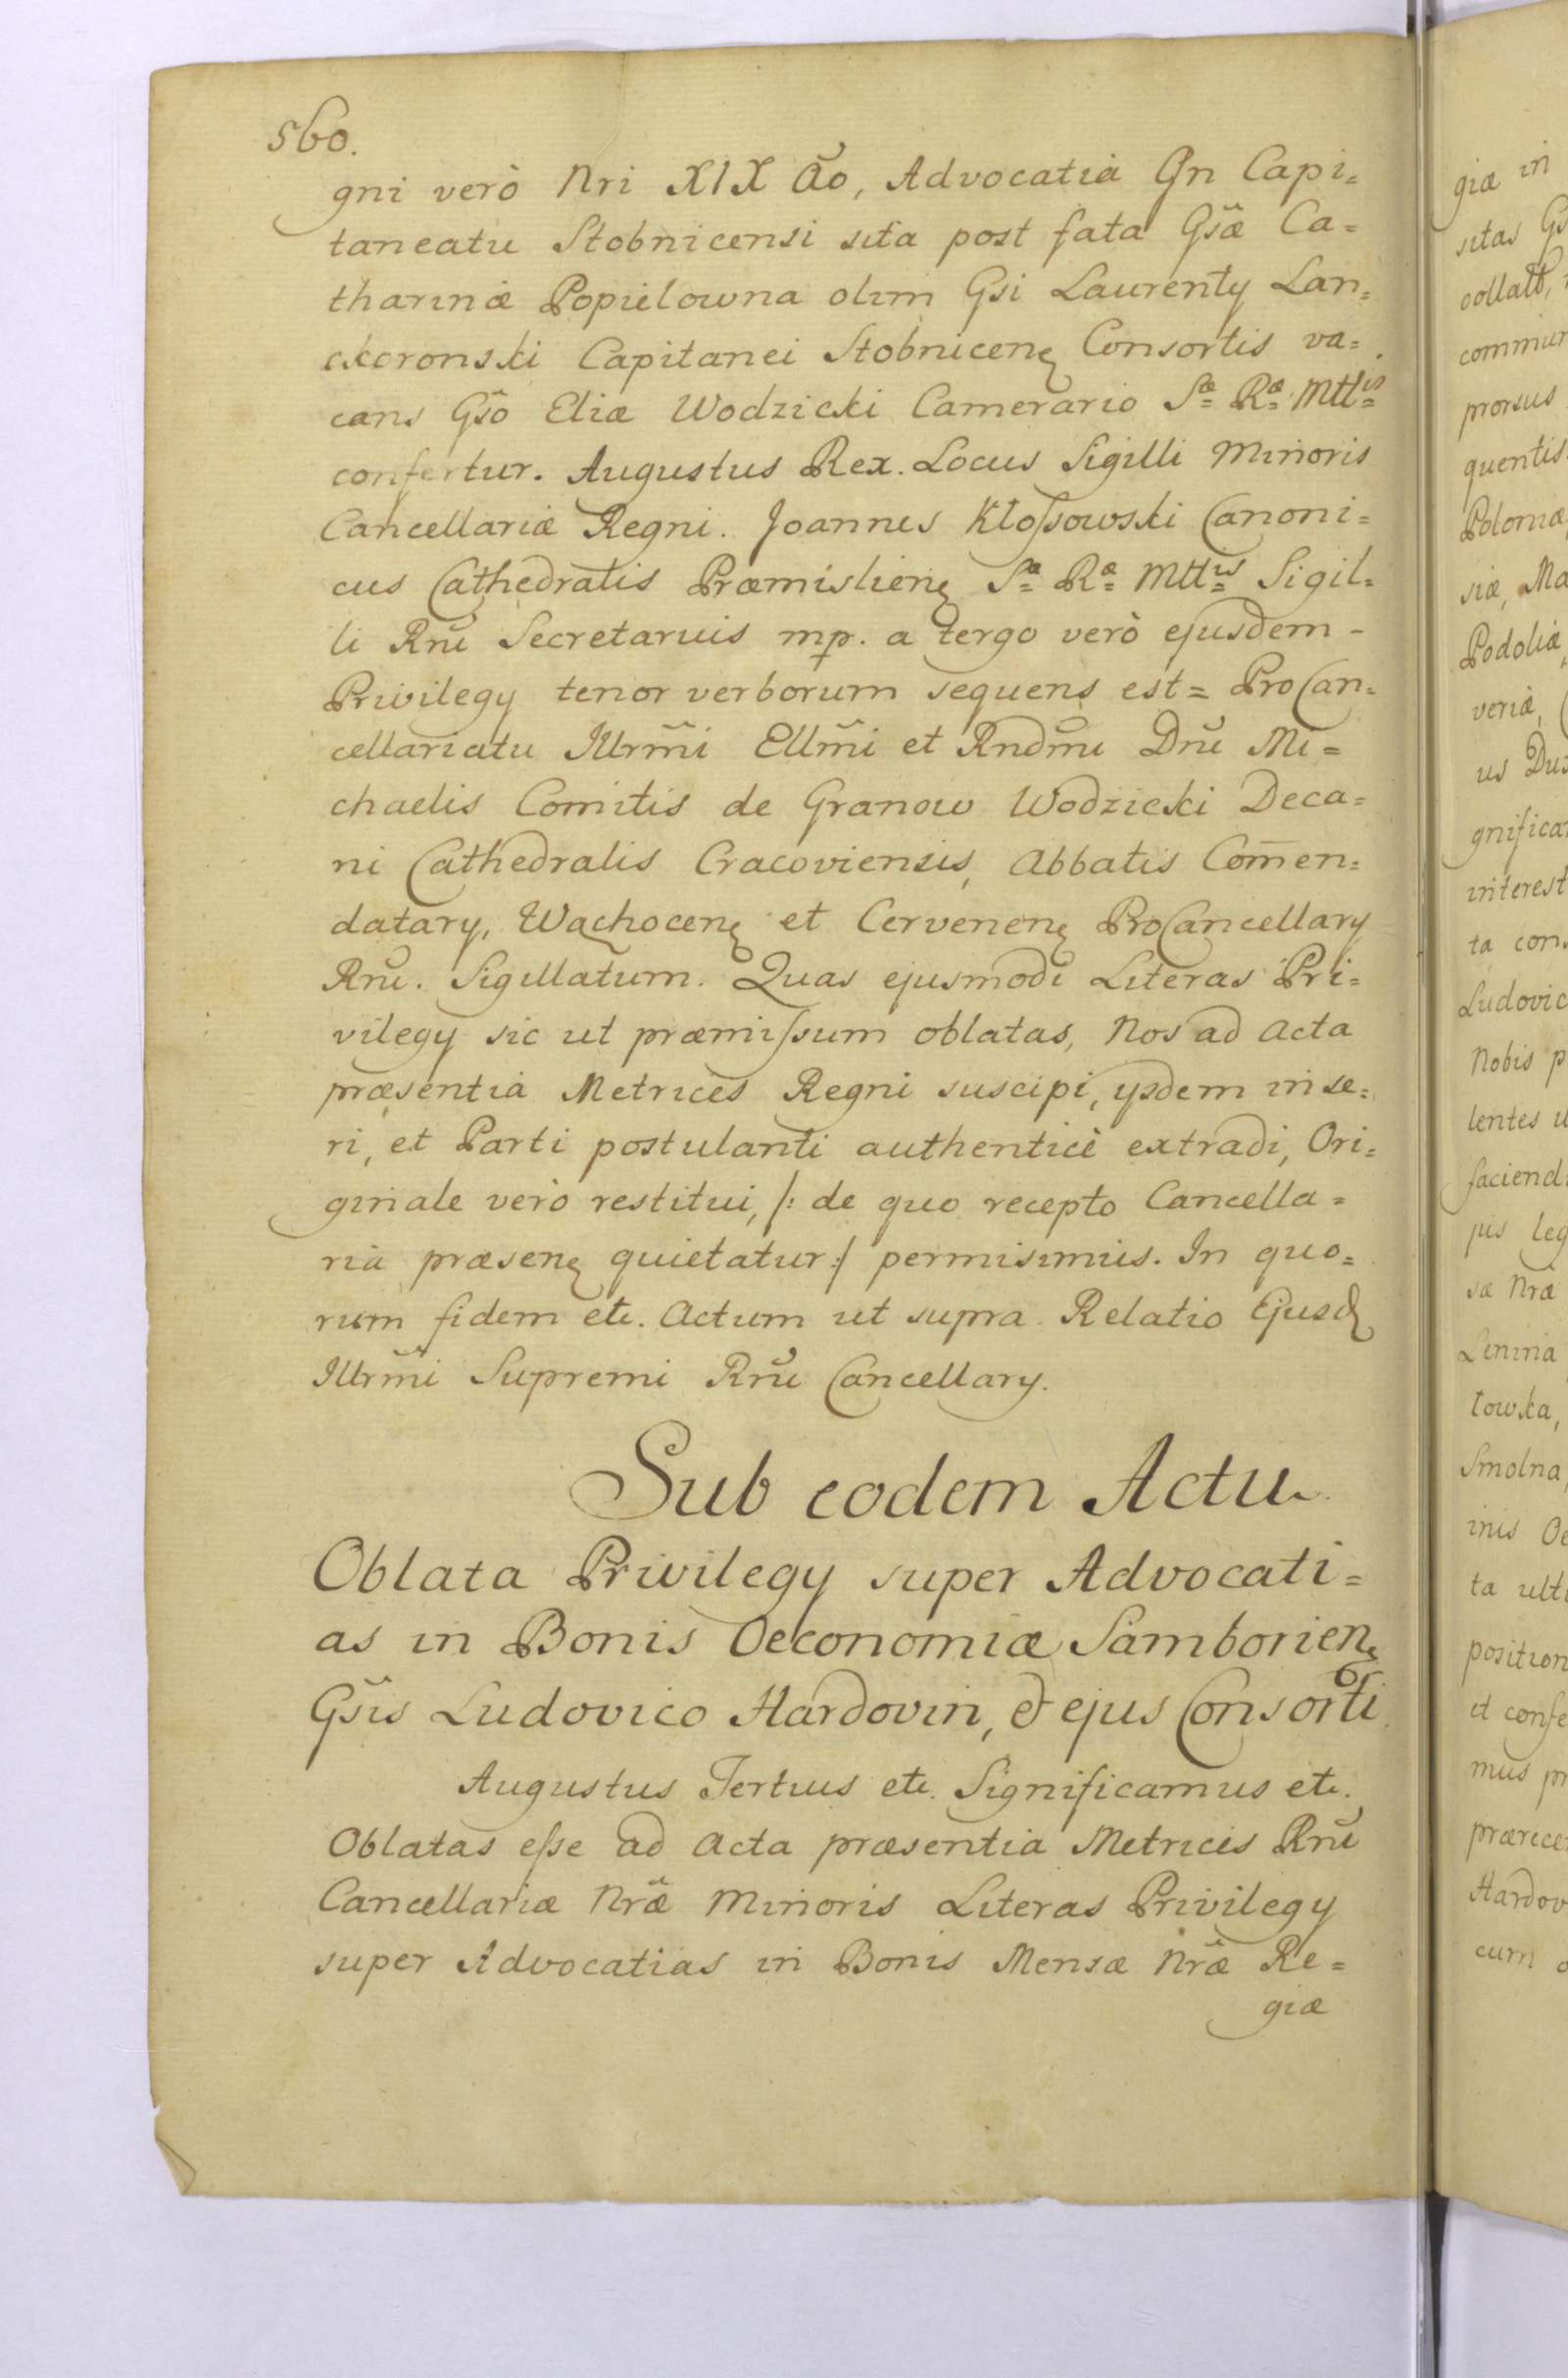 560.
gni verò Nri XIX Āo, Advocatia Gn Capi=
taneatu Stobnicensi sita post fata Gsæ Ca=
tharinæ Popielowna olim Gsi Laurenty Lan=
ckoronski Capitanei Stobnicenę Consortis va=
cans Gso Eliæ Wodzicki Camerario Sæ Ræ Mttis
confertur. Augustus Rex. Locus Sigilli Minoris
Cancellariæ Regni. Joannes Kłoſsowski Canoni=
cus Cathedralis Præmislienę Sæ Ræ Mttis Sigil=
li Rnu Secretarius mp. a tergo verò ejusdem -
Privilegy tenor verborum sequens est = ProCan=
cellariatu Illrmi Ellmi et Rndmi Dni Mi=
chaelis Comitis de Granow Wodzicki Deca=
ni Cathedralis Cracoviensis, Abbatis Com̄en=
datary, Wachocenę et Cervenenę ProCancellary
Rnĩ. Sigillatum. Quas ejusmodi Literas Pri=
vilegy sic ut præmiſsum oblatas, Nos ad Acta
præsentia Metrices Regni suscipi, ysdem inse=
ri, et Parti postulanti authenticè extradi, Ori=
ginale verò restitui, /: de quo recepto Cancella=
ria præsenę quietatur :/ permisimus. In quo=
rum fidem etc. Actum ut supra. Relatio Ejusd
Illrmi Supremi Rnĩ Cancellary.
Sub eodem Actu
Oblata Privilegy super Advocati=
as in Bonis Oeconomiæ Samborienę
Gsis Ludovico Hardovin, & ejus Consorti
Augustus Tertius etc. Significamus etc.
Oblatas eſse ad Acta præsentia Metrices Rnĩ
Cancellariæ Nræ Minoris Literas Privilegy
super Advocatias in Bonis Mensæ Nræ Re=
giæ
giæ in
sitas
prorsus
quentis
Podoliæ
interest
Ludovic
Nobis
lentes
sæ Nræ
Lenina
Smolna
inis
et
mus
Hardov
cum